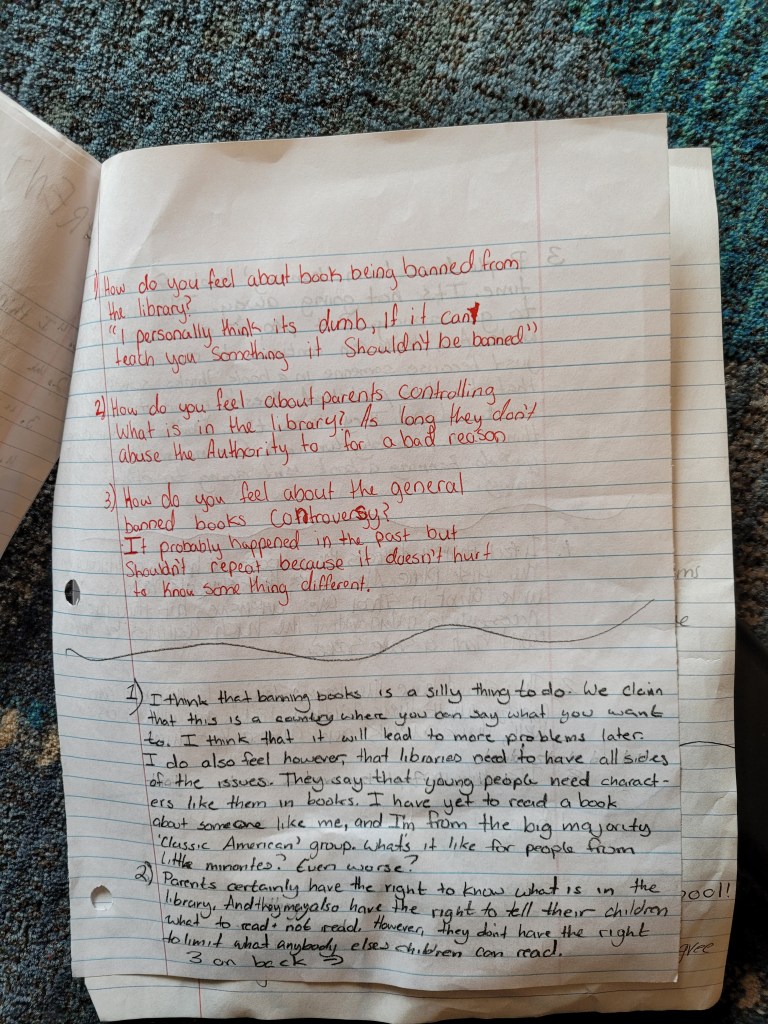 1) How do you feel about book being banned from
the library?
"I personally think its dumb, If it can
teach you something it Shouldn't be banned")
2) How do you feel about parents controlling
What is in the library? As long they don't
abuse the Authority to for a bad reason
3) How do you feel about the general
banned books Controversy?
It probably happened in the past but
Shouldn't repeat because it doesn't hurt
to know some thing different.
1) I think that banning books is a silly thing to do. We claim
that this is a country where you can say what you want
to. I think that it will lead to more problems later.
I do also feel however, that libraries need to have all sides
of the issues. They say that young people need charact-
ers like them in books. I have yet to read a book
about someone like me, and I'm from the big majority
'Classic American' group. whats it like for people from
little minorites? Even worse?
2) Parents certainly have the right to know what is in the
library. And they may also have the right to tell their children
what to read + not read. However, they don't have the right
to limit what anybody elses children can read.
3 on back ⇒
ms
e
ool!
gree